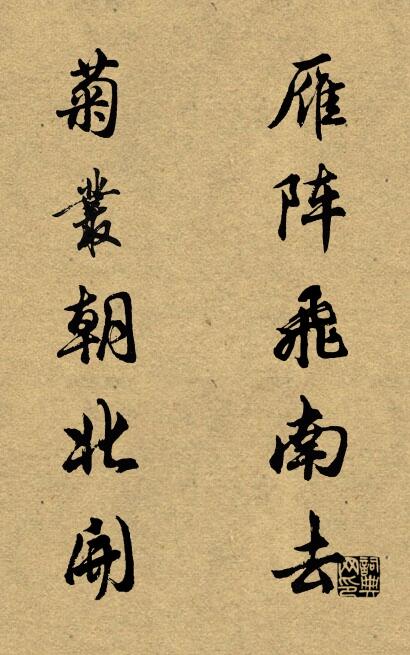 雁阵飞南去
菊叢朝北開
詞典
网印